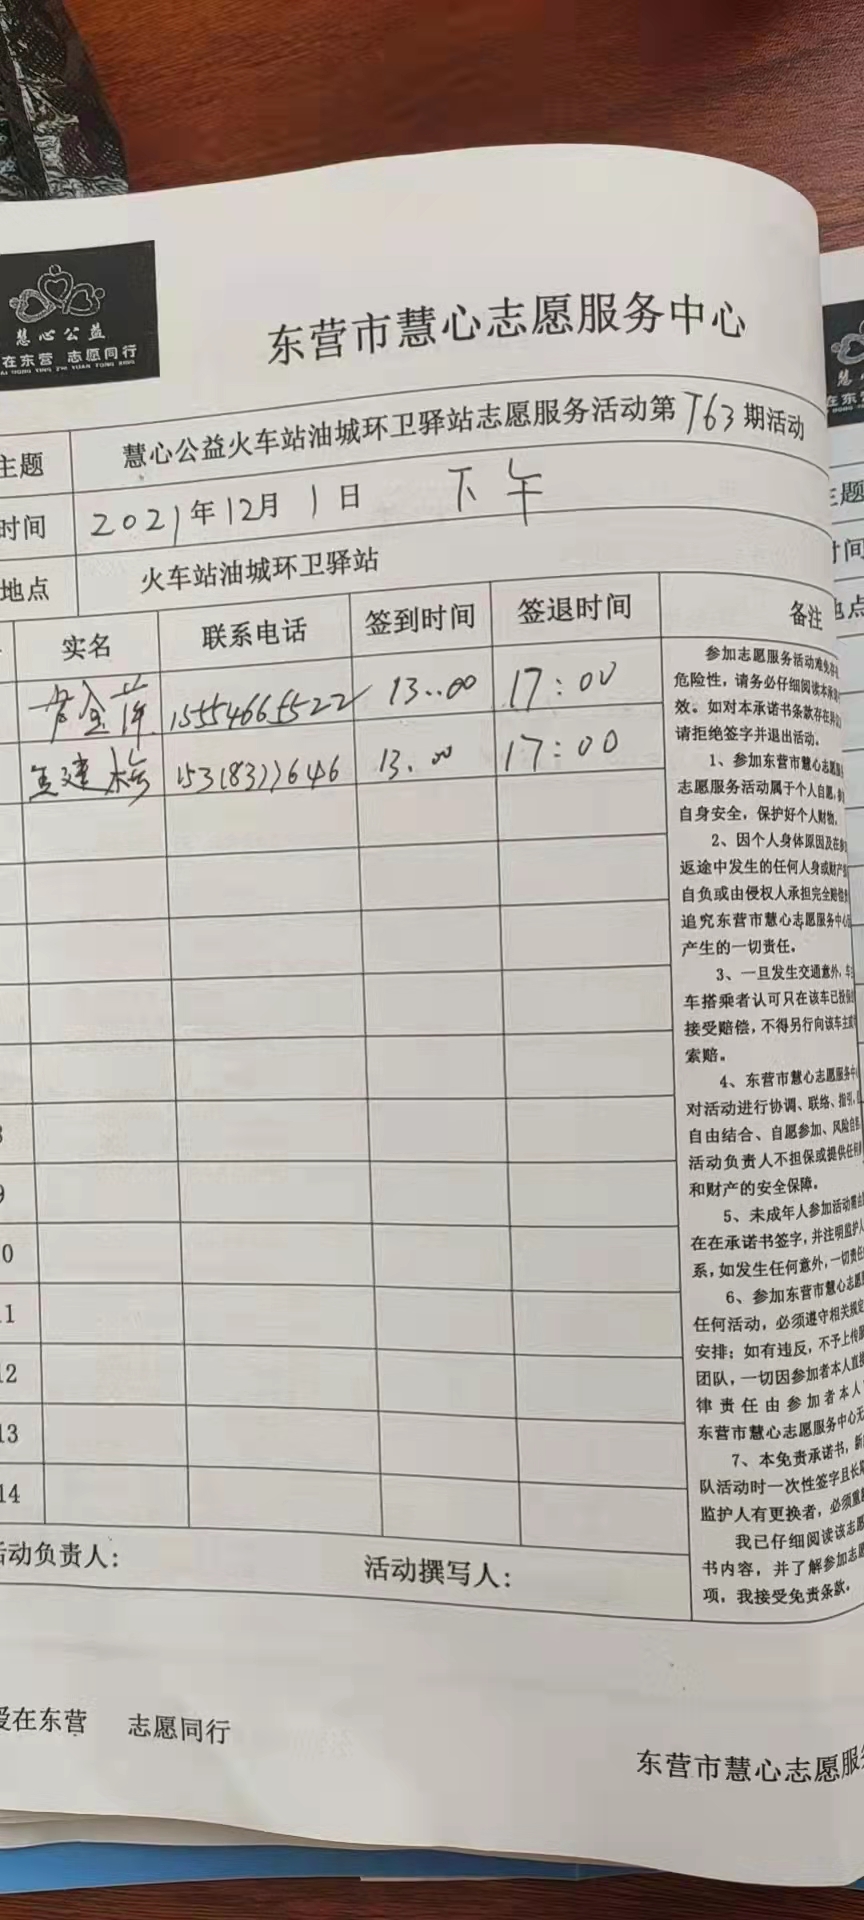 慧心公益
在东营 志愿同行
东营市慧心志愿服务中心
主题 慧心公益火车站油城环卫驿站志愿服务活动第763期活动
时间 2021年12月1日 下午
地点 火车站油城环卫驿站
实名 联系电话 签到时间 签退时间 备注
15554665522 13..00 17:00
建梅 13.00 17:00
8
9
10
11
12
13
14
参加志愿服务活动难免存
危险性，请务必仔细阅读本承
效。如对本承诺书条款存在异
请拒绝签字并退出活动。
1、参加东营市慧心志愿
志愿服务活动属于个人自愿，
自身安全，保护好个人财物。
2、因个人身体原因及在参
返途中发生的任何人身或财产
自负或由侵权人承担完全赔偿
追究东营市慧心志愿服务中心
产生的一切责任。
3、一旦发生交通意外，车
车搭乘者认可只在该车已投保
接受赔偿，不得另行向该车主
索赔。
4、东营市慧心志愿服务中
对活动进行协调、联络、指引，
自由结合、自愿参加、风险自
活动负责人不担保或提供任何
和财产的安全保障。
5、未成年人参加活动需
在在承诺书签字，并注明监护人
系，如发生任何意外，一切责任
6、参加东营市慧心志愿
任何活动，必须遵守相关规定
安排；如有违反，不予上传
团队，一切因参加者本人直接
律责任由参加者本人
东营市慧心志愿服务中心无
7、本免责承诺书，新
队活动时一次性签字且长期
监护人有更换者，必须重新
我已仔细阅读该志愿
书内容，并了解参加志愿
项，我接受免责条款。
活动负责人： 活动撰写人：
爱在东营 志愿同行
东营市慧心志愿服